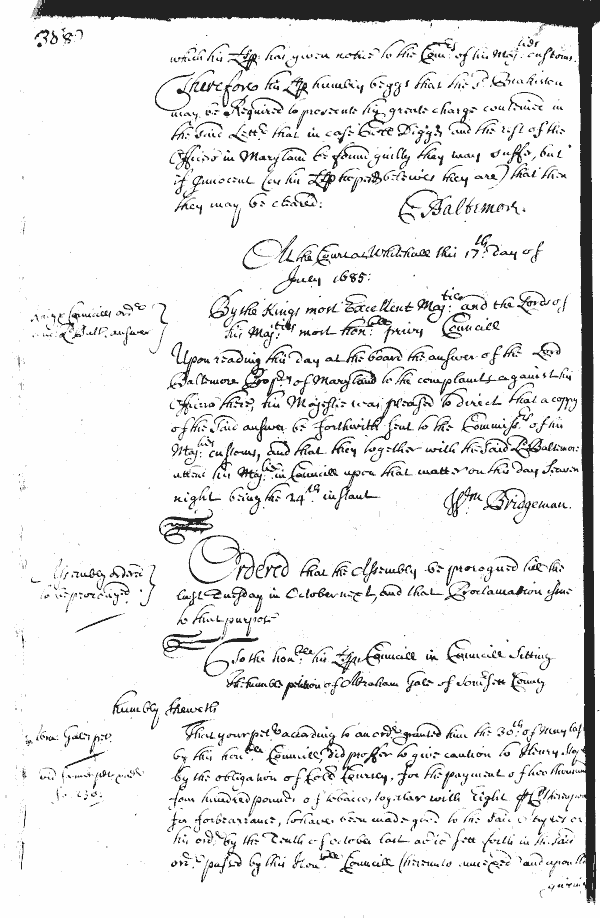 308
which his Lp: has given notice to the Com:rs of his Maj:ties customs.
Therefore his Lp humbly beggs that the sd.
may be Required to prosecute his greate charge conteined in
the said Lett:r that in case Coll Digges and the rest of the
Officers in Maryland be found guilty they may suffer, but
if Innocent (as his Lp hopes & beleives they are) that then
they may be cleared:
C Baltimore.
At the Court at Whitehall this 17th day of
July 1685:
By the Kings most Excellent Maj:tie and the Lords of
his Maj:ties most hon:ble privy Councill
Councill ord:r
Balt. answer
Upon reading this day at the board the answer of the Lord
Baltemore Prop:r of Maryland to the complaints against his
Officers there, his Majestie was pleased to direct that a coppy
of the said answer be forthwith sent to the Commiss:rs of his
Maj:ties customs, and that they together with the said Ld Baltimore
attend his Maj:tie in Councill upon that matter on this day Seaven
night being the 24th instant
Wm Bridgeman.
Assembly ordered
to be prorogued.
Ordered that the Assembly be prorogued till the
last Tuesday in October next, and that Proclamation issue
to that purpose
To the hon:ble his Lp:s Councill in Councill Sitting
The humble petition of Abraham Gale of Som:sett County
humbly sheweth
Abra: Gales pet:
That your pet:r according to an ord:r granted him the 30th of May last
by this hon:ble Councill, did proffer to give caution to Henry
by the obligation of Coll Coursey, for the payment of two thousand
four hundred pounds of tobacco, together with Eight
for forbearance, to have been made good to the said
his ord:r by the Tenth of October last as is sett forth in the said
ord:r passed by this Hon:ble Councill (hereunto annexed) and upon the